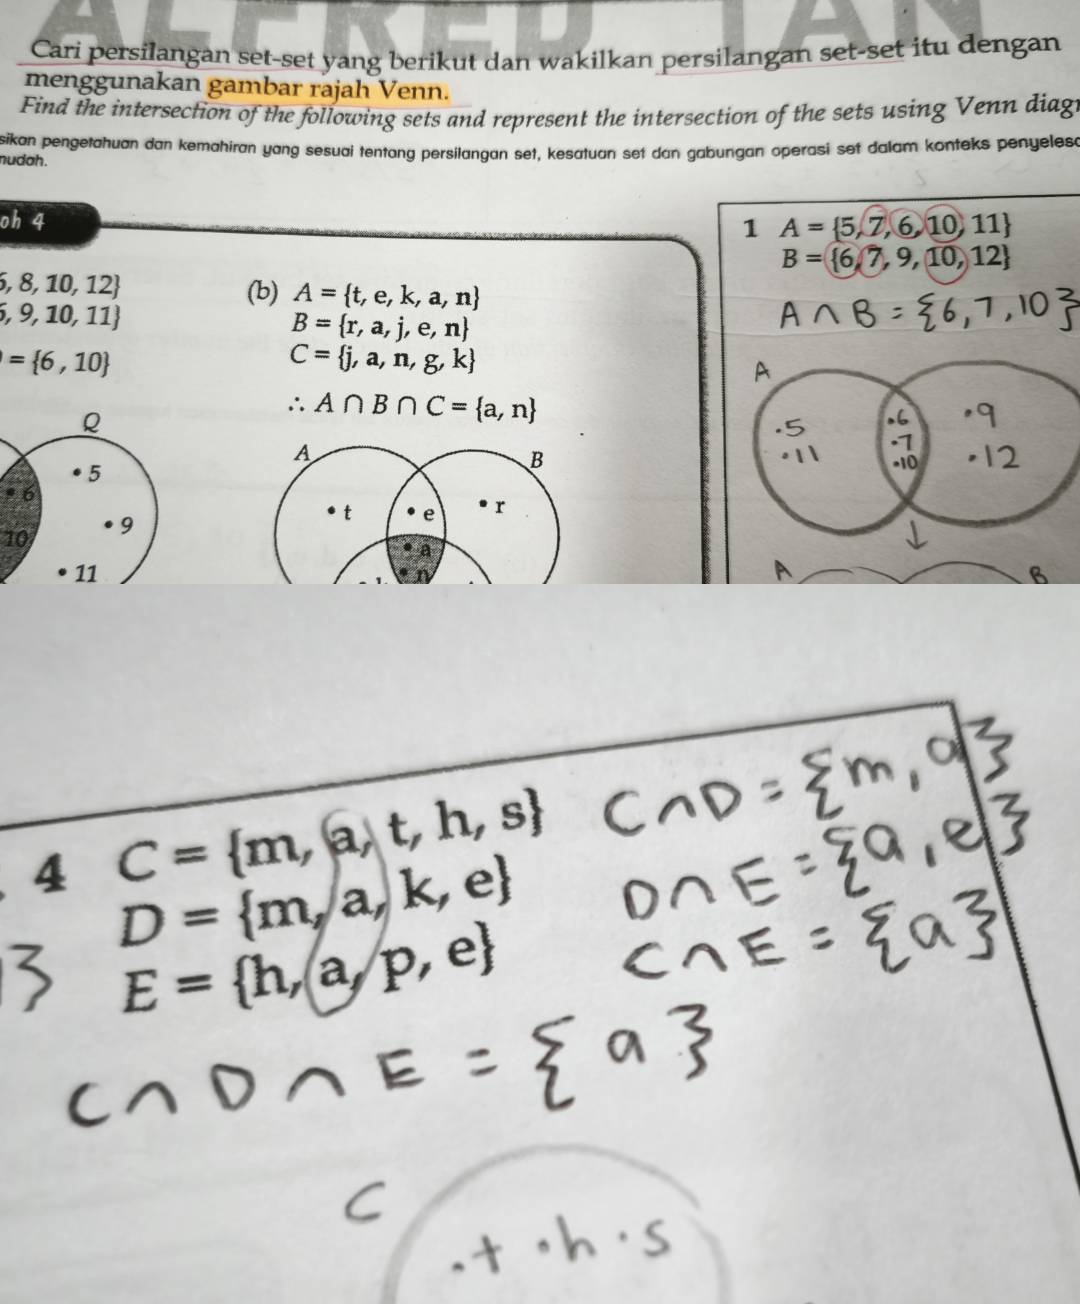 ALFRED TAN
Cari persilangan set-set yang berikut dan wakilkan persilangan set-set itu dengan
menggunakan gambar rajah Venn.
Find the intersection of the following sets and represent the intersection of the sets using Venn diagr
sikan pengetahuan dan kemahiran yang sesuai tentang persilangan set, kesatuan set dan gabungan operasi set dalam konteks penyelesa
mudah.
oh 4
6, 8, 10, 12}
6, 9, 10, 11}
= {6 , 10}
Q
• 5
• 6
• 9
10
• 11
(b) A = {t, e, k, a, n}
B = {r, a, j, e, n}
C = {j, a, n, g, k}
∴ A ∩ B ∩ C = {a, n}
A
B
• t
• e
• r
• a
• n
1 A = {5, 7, 6, 10, 11}
B = {6, 7, 9, 10, 12}
A ∩ B = {6, 7, 10}
A
.5
.11
.6
.7
.10
.9
.12
↓
A
B
4 C = {m, a, t, h, s}
D = {m, a, k, e}
E = {h, a, p, e}
C ∩ D = {m, a}
D ∩ E = {a, e}
C ∩ E = {a}
C ∩ D ∩ E = {a}
C
.t .h .s